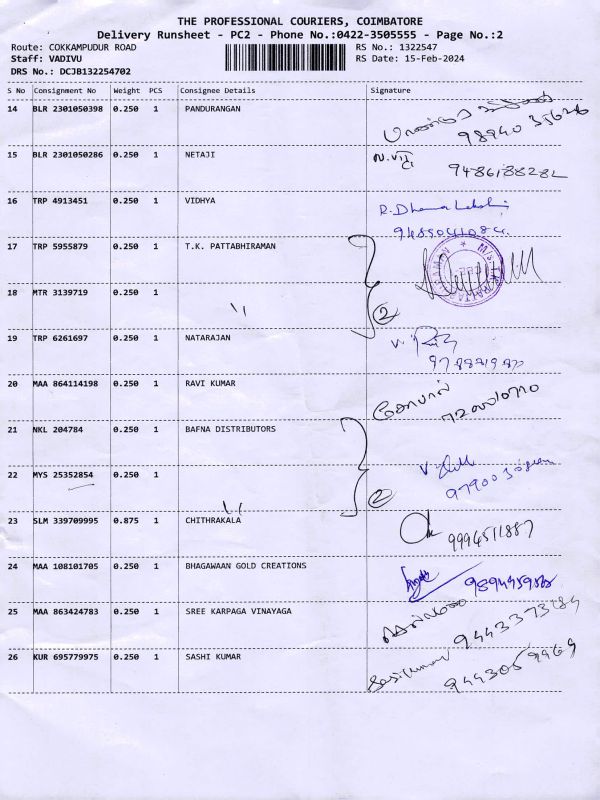 THE PROFESSIONAL COURIERS, COIMBATORE
Delivery Runsheet - PC2 - Phone No.:0422-3505555 - Page No.:2
Route: COKKAMPUDUR ROAD
Staff: VADIVU
DRS No.: DCJB132254702
RS No.: 1322547
RS Date: 15-Feb-2024
S No Consignment No Weight PCS Consignee Details Signature
14 BLR 2301050398 0.250 1 PANDURANGAN
15 BLR 2301050286 0.250 1 NETAJI
9486188282
16 TRP 4913451 0.250 1 VIDHYA
R. Dhana Lakshmi
17 TRP 5955879 0.250 1 T.K. PATTABHIRAMAN
18 MTR 3139719 0.250 1
2
19 TRP 6261697 0.250 1 NATARAJAN
20 MAA 864114198 0.250 1 RAVI KUMAR
கோபால்
21 NKL 204784 0.250 1 BAFNA DISTRIBUTORS
22 MYS 25352854 0.250 1
2
23 SLM 339709995 0.875 1 CHITHRAKALA
9994511887
24 MAA 108101705 0.250 1 BHAGAWAAN GOLD CREATIONS
25 MAA 863424783 0.250 1 SREE KARPAGA VINAYAGA
26 KUR 695779975 0.250 1 SASHI KUMAR
Sasikumar